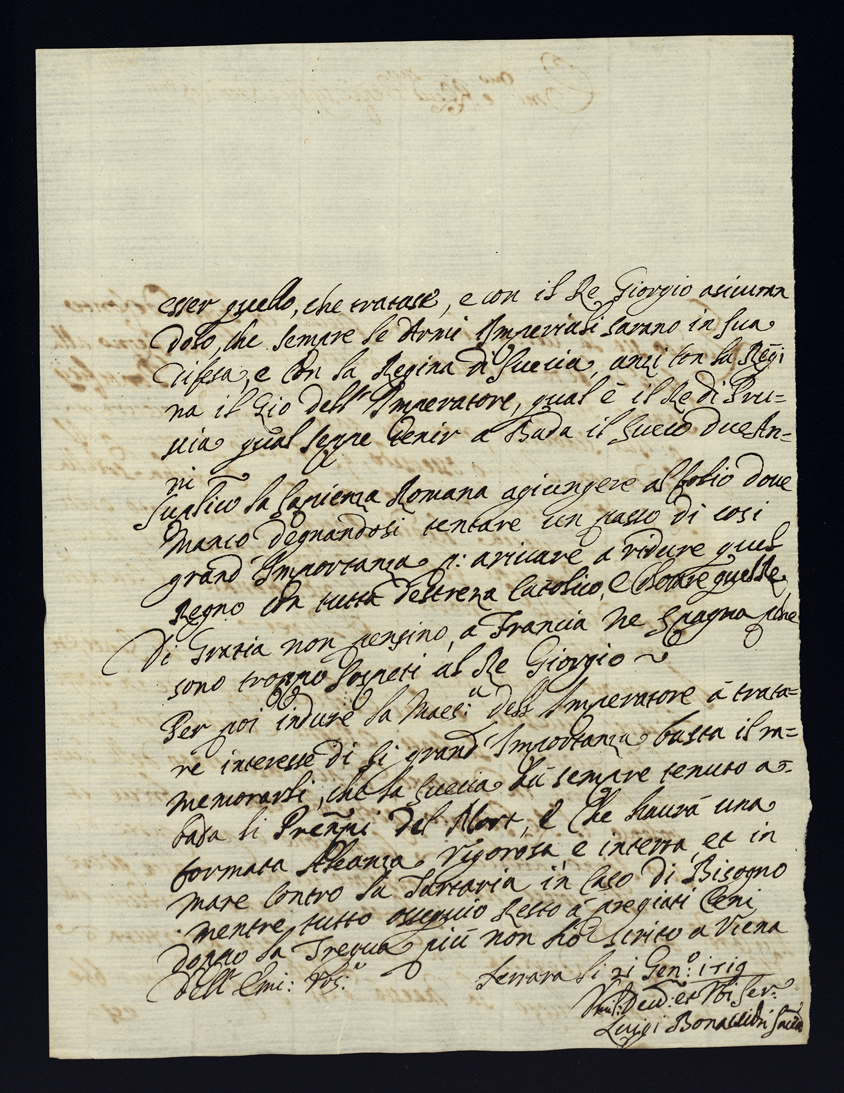 esser quello, che tratase, e con il Re Giorgio asicuran
dolo, che sempre le Armi Imperiali sarano in sua
difesa, e con la Regina di Suecia, anzi con la Regi
na il Zio dell' Imperatore, qual è il Re di Pru-
sia qual seppe tenir a Bada il Sueco due An-
ni
Suplico la sapienza Romana agiungere al foslio dove
manco degnandosi tentare un passo di cosi
grand' Importanza p: arivare a ridure quel
Regno con tutta destreza Catolico, e
Di Gratia non pensino, a Francia ne Spagna
sono troppo sospeti al Re Giorgio ~
Per poi indure la Maes:ta dell' Imperatore à trata-
re interesse di si grand' Importanza basta il ra-
memorarli, che la Suecia hà sempre tenuto a
bada li del Nort, e che haurà una
formata Aleanza vigorosa e in terra, et in
mare contro la Tartaria in caso di Bisogno
mentre tutto ossequio resto à pregiati Ceni
doppo la Tregua più non hò scrito a Viena
Dell' Emi: Vos:a Ferrara li 21 Gen:o 1719
Umil: Dev: et Ser:
Luigi